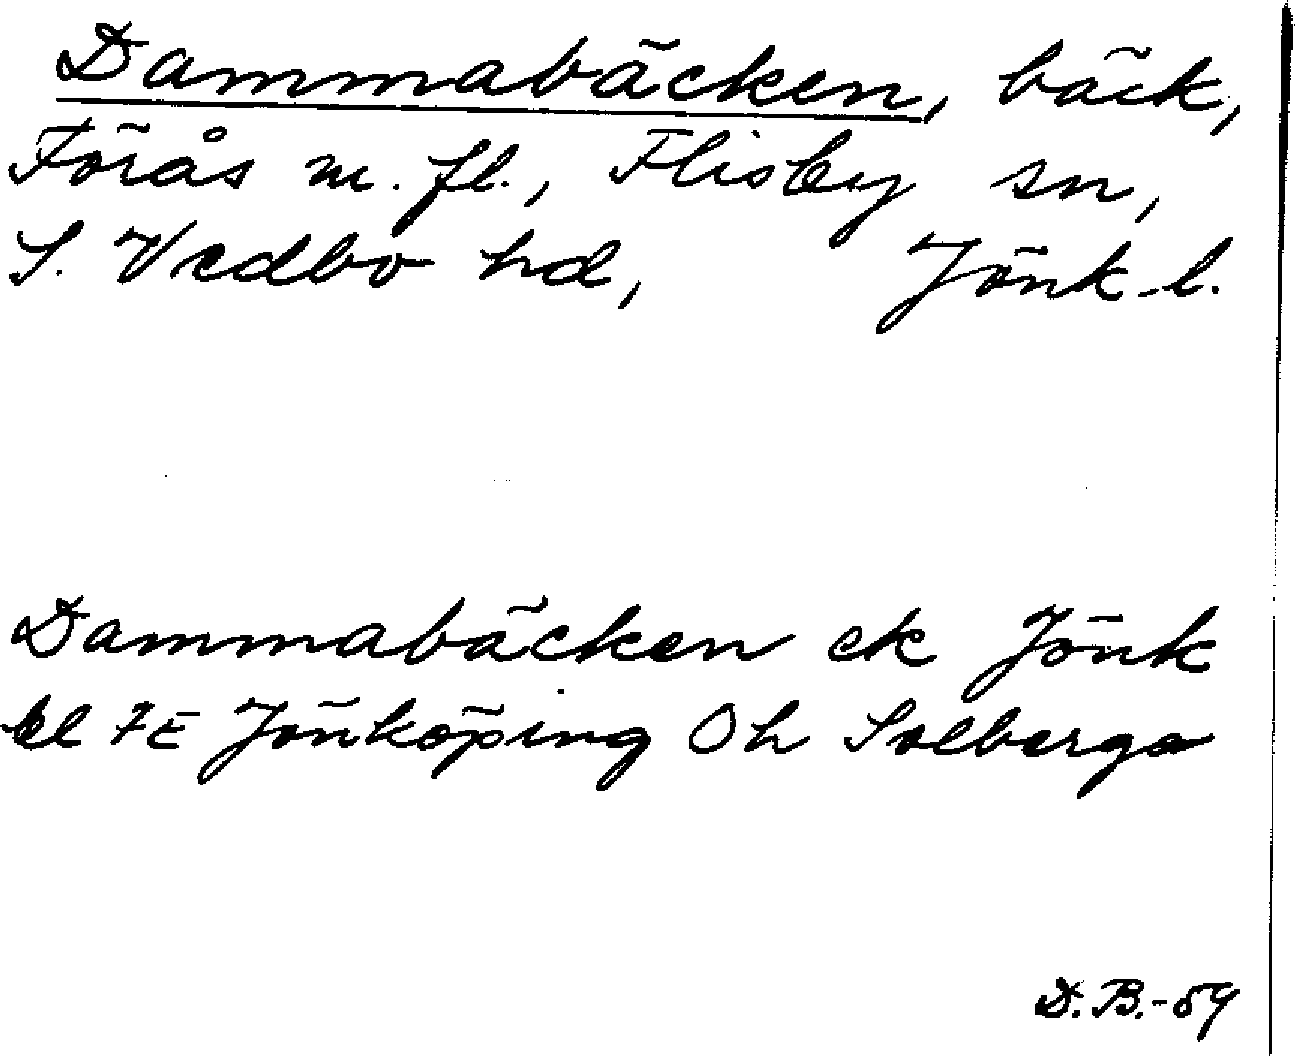 Dammabäcken, bäck,
Förås m. fl., Flisby sn,
S. Vedbo hd, Jönk. l.
Dammabäcken ek Jönk
bl 7E Jönköping Oh Solberga
D.B.-59